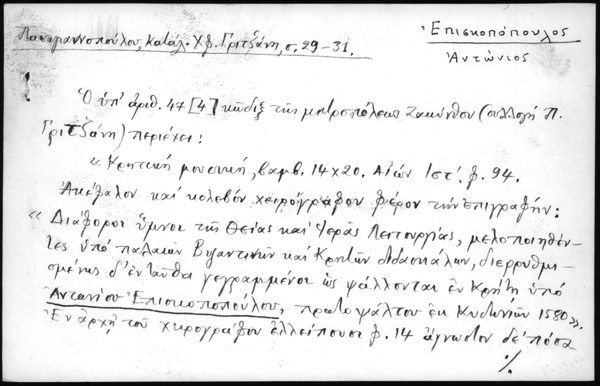 Παπαγιαννοπούλου, Κατάλ. Χφ. Γριτζάνη, σ. 29-31.
Ἐπισκοπόπουλος
Ἀντώνιος
Ὁ ὑπ' ἀριθ. 47 [4] κῶδιξ τῆς μητροπόλεως Ζακύνθου (συλλογή Π.
Γριτζάνη) περιέχει:
«Κρητική μουσική, βαμβ. 14 Χ 20. Αἰών Ιστ'. φ. 94.
Ἀκέφαλον καί κολοβόν χειρόγραφον φέρον τήν ἐπιγραφήν:
«Διάφοροι ὕμνοι τῆς Θείας καί Ἱερᾶς Λειτουργίας, μελοποιηθέν-
τες ὑπό παλαιῶν Βυζαντινῶν καί Κρητῶν διδασκάλων, διερρυθμι-
σμένως δ' ἐνταῦθα γεγραμμένοι ὡς ψάλλονται ἐν Κρήτῃ ὑπό
Ἀντωνίου Ἐπισκοποπούλου, πρωτοψάλτου ἐκ Κυδωνιῶν 1580».
Ἐν ἀρχῇ τοῦ χειρογράφου ἐλλείπουσι φ. 14 ἄγνωστον δέ πόσα
./.